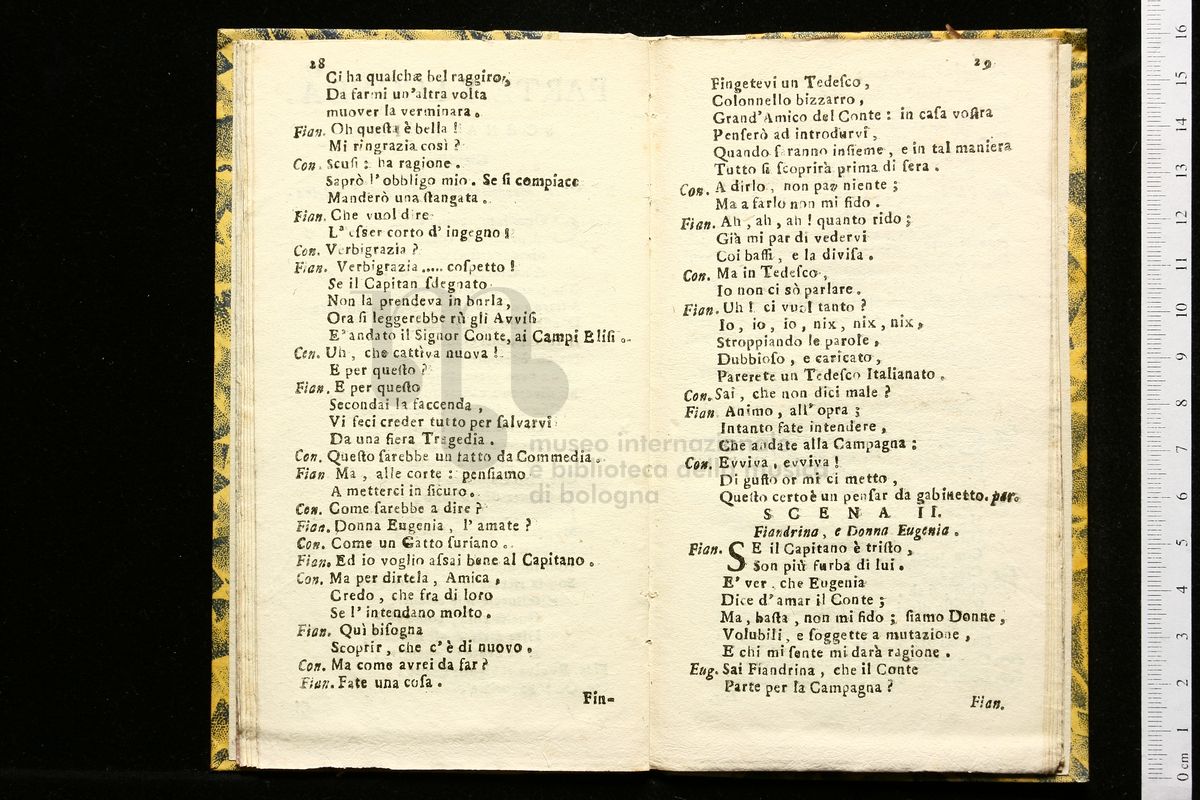 28
Ci ha qualche bel raggiro,
Da farmi un'altra volta
muover la verminara.
Fian. Oh questa è bella!
Mi ringrazia così?
Con. Scusi: ha ragione.
Saprò l'obbligo mio. Se si compiace
Manderò una stangata.
Fian. Che vuol dire
L'esser corto d'ingegno!
Con. Verbigrazia?
Fian. Verbigrazia..... cospetto!
Se il Capitan sdegnato
Non la prendeva in burla,
Ora si leggerebbe sù gli Avvisi
E' andato il Signor Conte, ai Campi Elisi.
Con. Uh, che cattiva nuova!
E per questo?
Fian. E per questo
Secondai la faccenda,
Vi feci creder tutto per salvarvi
Da una fiera Tragedia.
Con. Questo sarebbe un fatto da Commedia.
Fian. Ma, alle corte: pensiamo
A metterci in sicuro.
Con. Come sarebbe a dire?
Fian. Donna Eugenia, l'amate?
Con. Come un Gatto suriano.
Fian. Ed io voglio assai bene al Capitano.
Con. Ma per dirtela, Amica,
Credo, che fra di loro
Se l'intendano molto.
Fian. Quì bisogna
Scoprir, che c'è di nuovo.
Con. Ma come avrei da far?
Fian. Fate una cosa.
Fin-
29
Fingetevi un Tedesco,
Colonnello bizzarro,
Grand'Amico del Conte: in casa vostra
Penserò ad introdurvi,
Quando saranno insieme, e in tal maniera
Tutto si scoprirà prima di sera.
Con. A dirlo, non par niente;
Ma a farlo non mi fido.
Fian. Ah, ah, ah! quanto rido;
Già mi par di vedervi
Coi baffi, e la divisa.
Con. Ma in Tedesco,
Io non ci sò parlare.
Fian. Uh! ci vuol tanto?
Io, io, io, nix, nix, nix,
Stroppiando le parole,
Dubbioso, e caricato,
Parerete un Tedesco Italianato.
Con. Sai, che non dici male?
Fian. Animo, all'opra;
Intanto fate intendere,
Che andate alla Campagna:
Con. Evviva, evviva!
Di gusto or mi ci metto,
Questo certo è un pensar da gabinetto. par.
SCENA II.
Fiandrina, e Donna Eugenia.
Fian. SE il Capitano è tristo,
Son più furba di lui.
E' ver, che Eugenia
Dice d'amar il Conte;
Ma, basta, non mi fido; siamo Donne,
Volubili, e soggette a mutazione,
E chi mi sente mi darà ragione.
Eug. Sai Fiandrina, che il Conte
Parte per la Campagna?
Fian.
museo internazionale
e biblioteca della musica
di bologna
0 cm 1 2 3 4 5 6 7 8 9 10 11 12 13 14 15 16